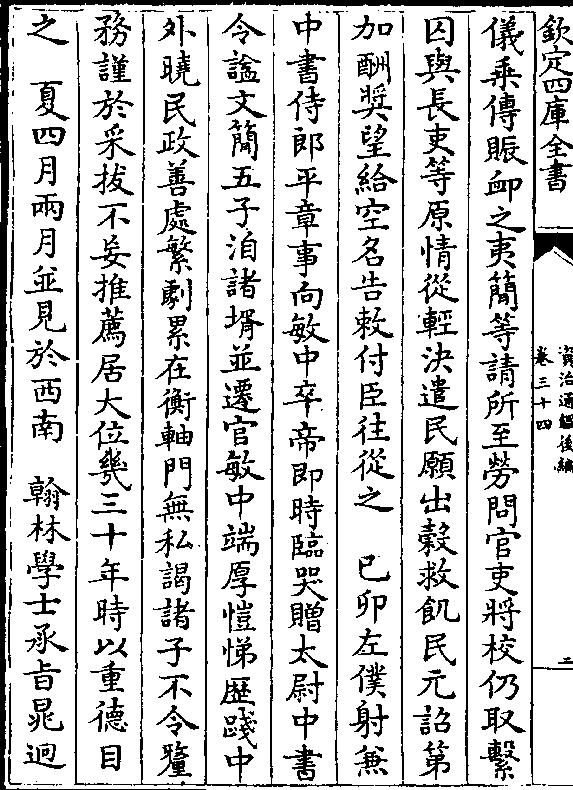 欽定四庫全書
資治通鑑後編
卷三十四
二
儀乘傳賑䘏之夷簡等請所至勞問官吏將校仍取繫
囚與長吏等原情從輕決遣民願出穀救飢民元詔第
加酬奬望給空名告敕付臣往從之　已卯左僕射兼
中書侍郎平章事向敏中卒帝即時臨哭贈太尉中書
令謚文簡五子洎諸壻並遷官敏中端厚愷悌歷踐中
外曉民政善處繁劇累在衡軸門無私謁諸子不令釐
務謹於采拔不妄推薦居大位幾三十年時以重德目
之　夏四月兩月並見於西南　翰林學士承旨晁迥